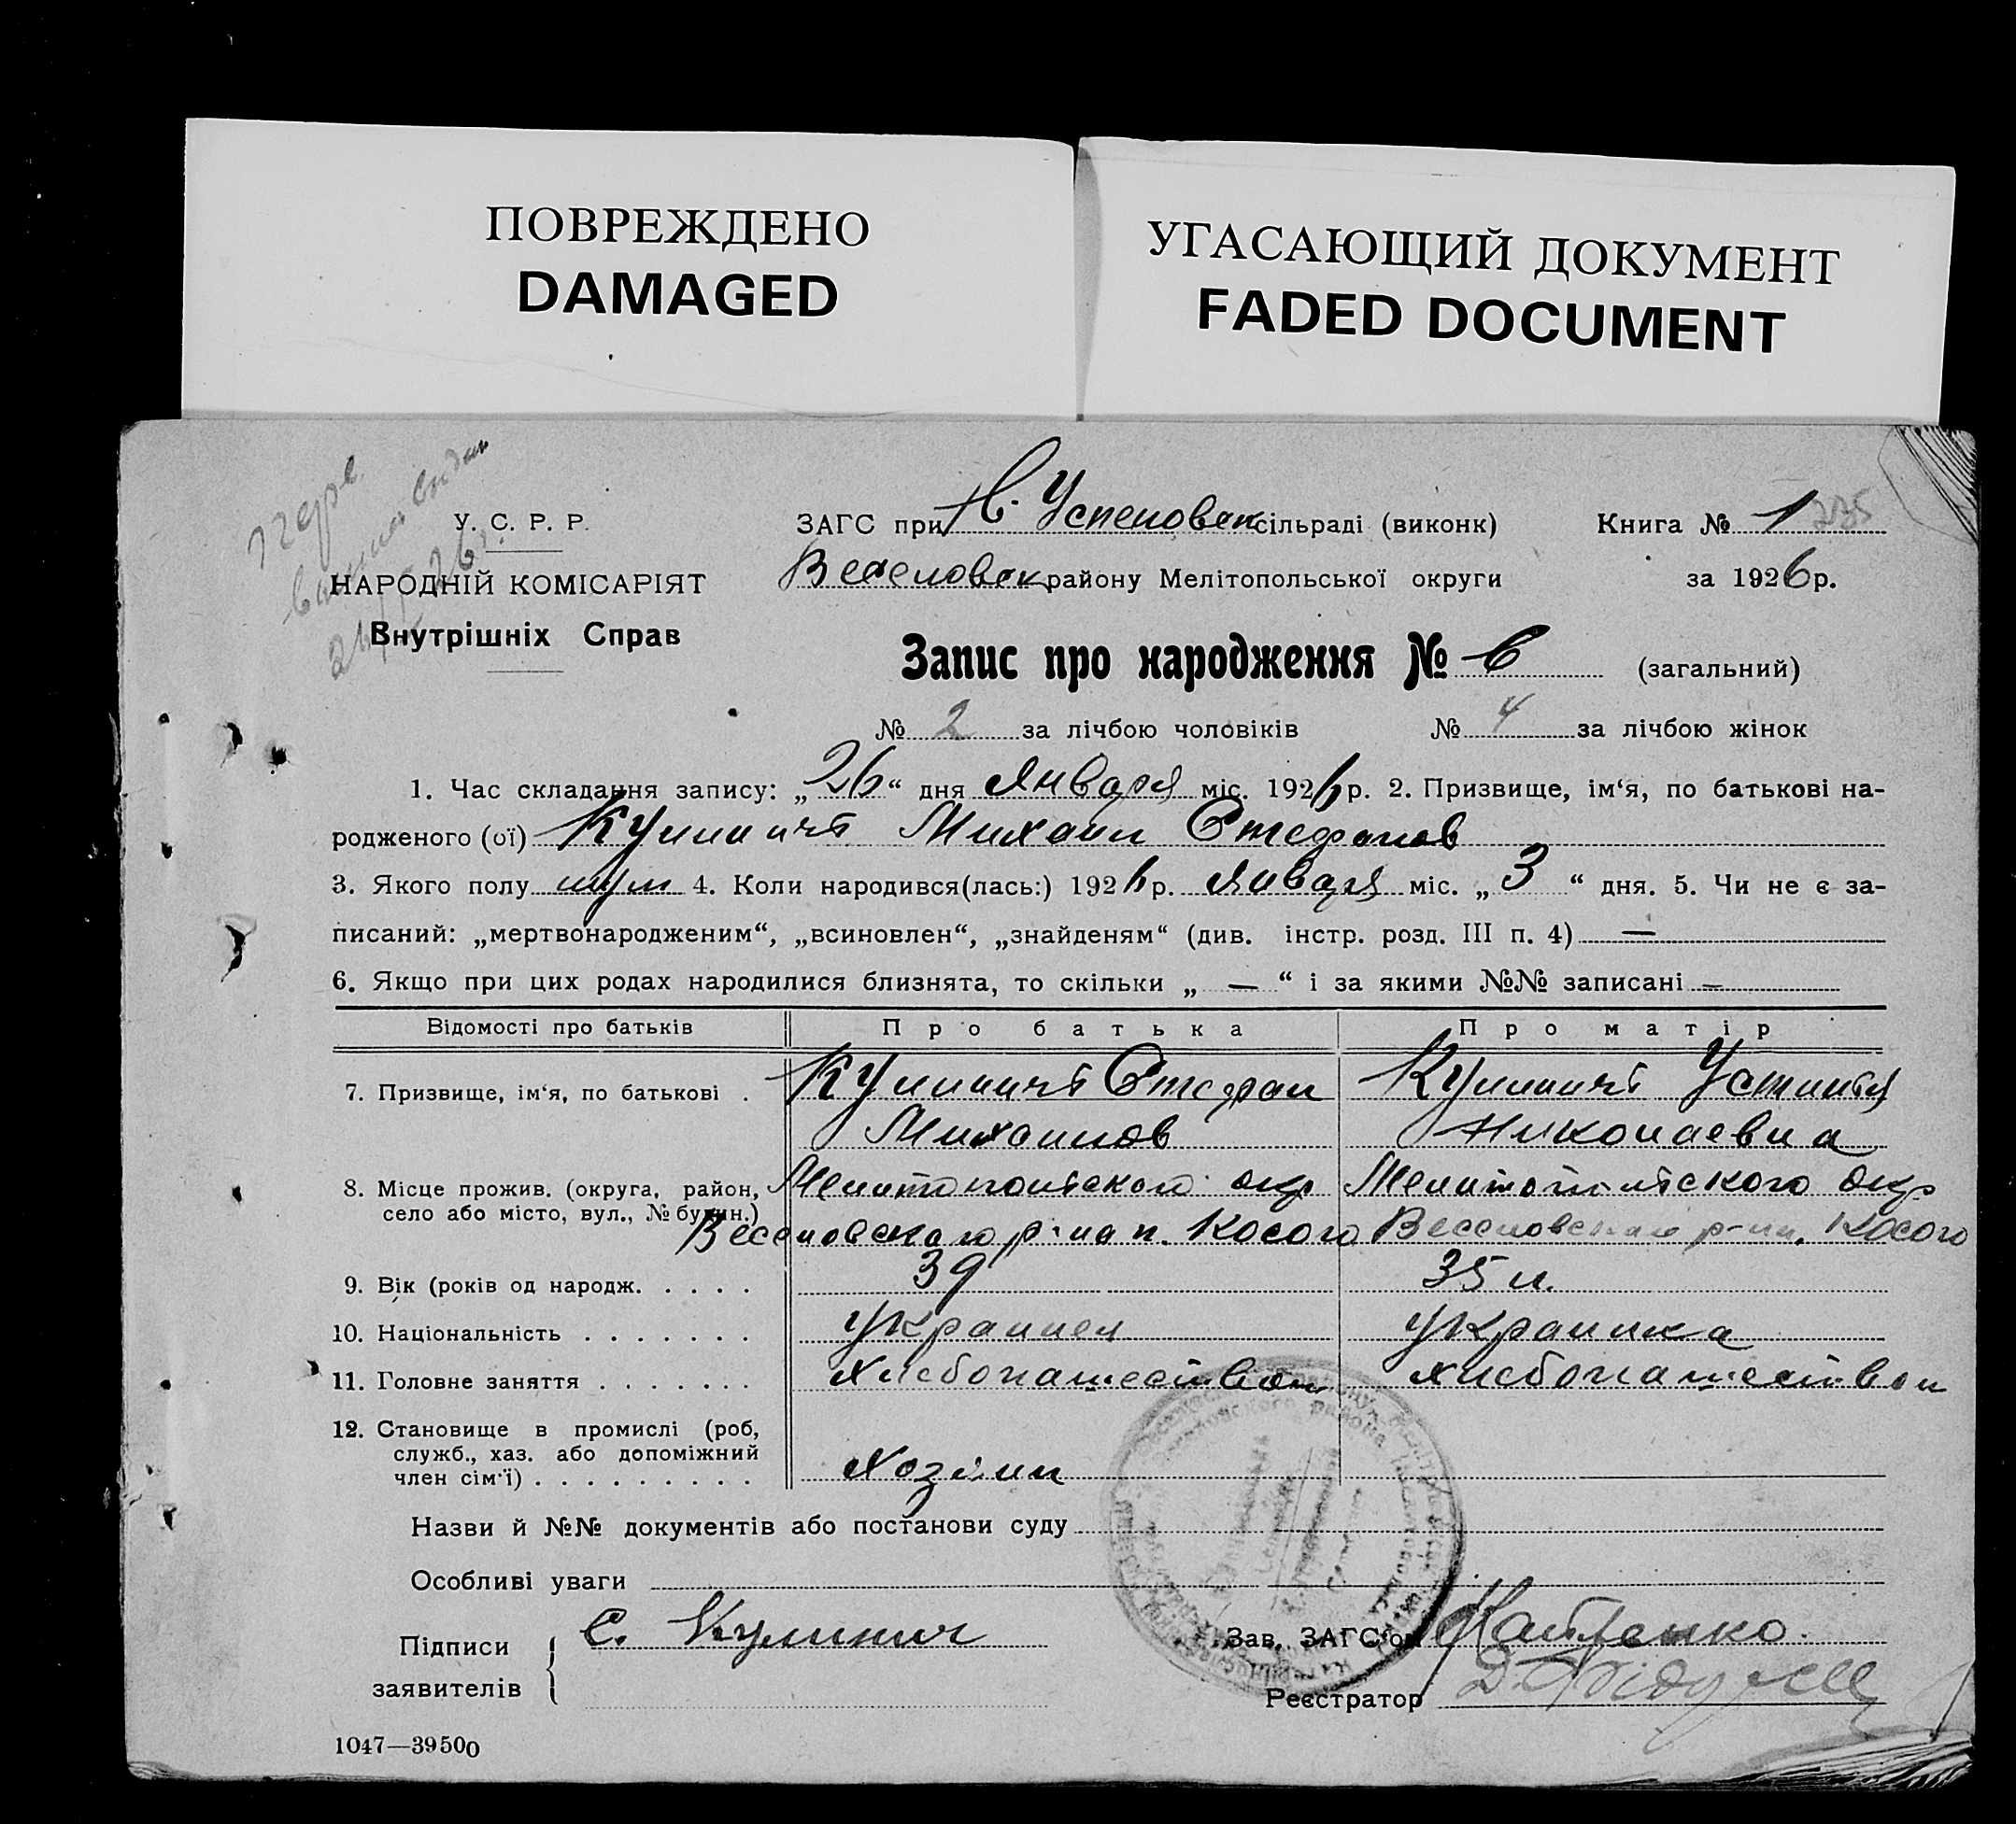 ПОВРЕЖДЕНО
DAMAGED
УГАСАЮЩИЙ ДОКУМЕНТ
FADED DOCUMENT
У. С. Р. Р.
НАРОДНІЙ КОМІСАРІЯТ
Внутрішніх Справ
ЗАГС при Н. Успеновск сільраді (виконк)
Книга № 1 235
Веселовск району Мелітопольської округи
за 1926 р.
Запис про народження № 6 (загальний)
№ 2 за лічбою чоловіків № 4 за лічбою жінок
1. Час складання запису: „26“ дня Января міс. 1926 р. 2. Призвище, ім‘я, по батькові на-
родженого (ої) Кулинич Михаил Стефанов
3. Якого полу муж 4. Коли народився(лась:) 1926 р. Января міс. „3“ дня. 5. Чи не є за-
писаний: „мертвонародженим“, „всиновлен“, „знайденям“ (див. інстр. розд. III п. 4) —
6. Якщо при цих родах народилися близнята, то скільки „ — “ і за якими №№ записані —
Відомості про батьків Про батька Про матір
7. Призвище, ім‘я, по батькові . Кулинич Стефан Кулинич Устинья
Михаилов Николаевна
8. Місце прожив. (округа, район, Мелитопольского окр Мелитопольского окр
село або місто, вул., № будин.) Веселовского р-на п. Косого Веселовского р-на. Косого
9. Вік (років од народж. . . . . 39 35 л.
10. Національність . . . . . . . Украинец Украинка
11. Головне заняття . . . . . . . Хлебопашеством хлебопашеством
12. Становище в промислі (роб,
служб., хаз. або допоміжний
член сім‘ї) . . . . . . . . . Хозяин
Назви й №№ документів або постанови суду
Особливі уваги
Підписи
заявителів
С. Кулинич
Зав. ЗАГС‘ом
Реєстратор
1047—39500